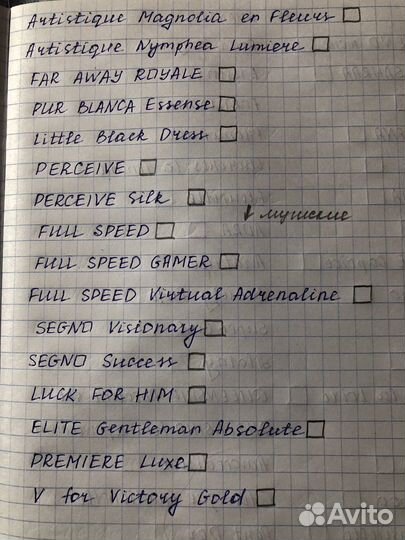 Artistique Magnolia en Fleurs
Artistique Nymphea Lumiere
FAR AWAY ROYALE
PUR BLANCA Essense
Little Black Dress
PERCEIVE
PERCEIVE Silk
↓ мужские
FULL SPEED
FULL SPEED GAMER
FULL SPEED Virtual Adrenaline
SEGNO Visionary
SEGNO Success
LUCK FOR HIM
ELITE Gentleman Absolute
PREMIERE Luxe
V for Victory Gold
Avito